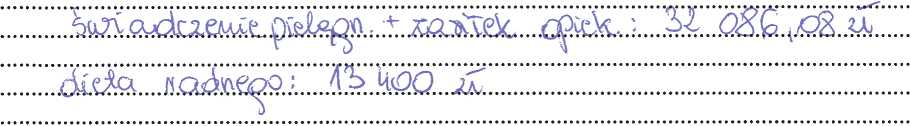 świadczenie pielęgn. + zasiłek opiek.: 32 086,08 zł
dieta radnego: 13 400 zł